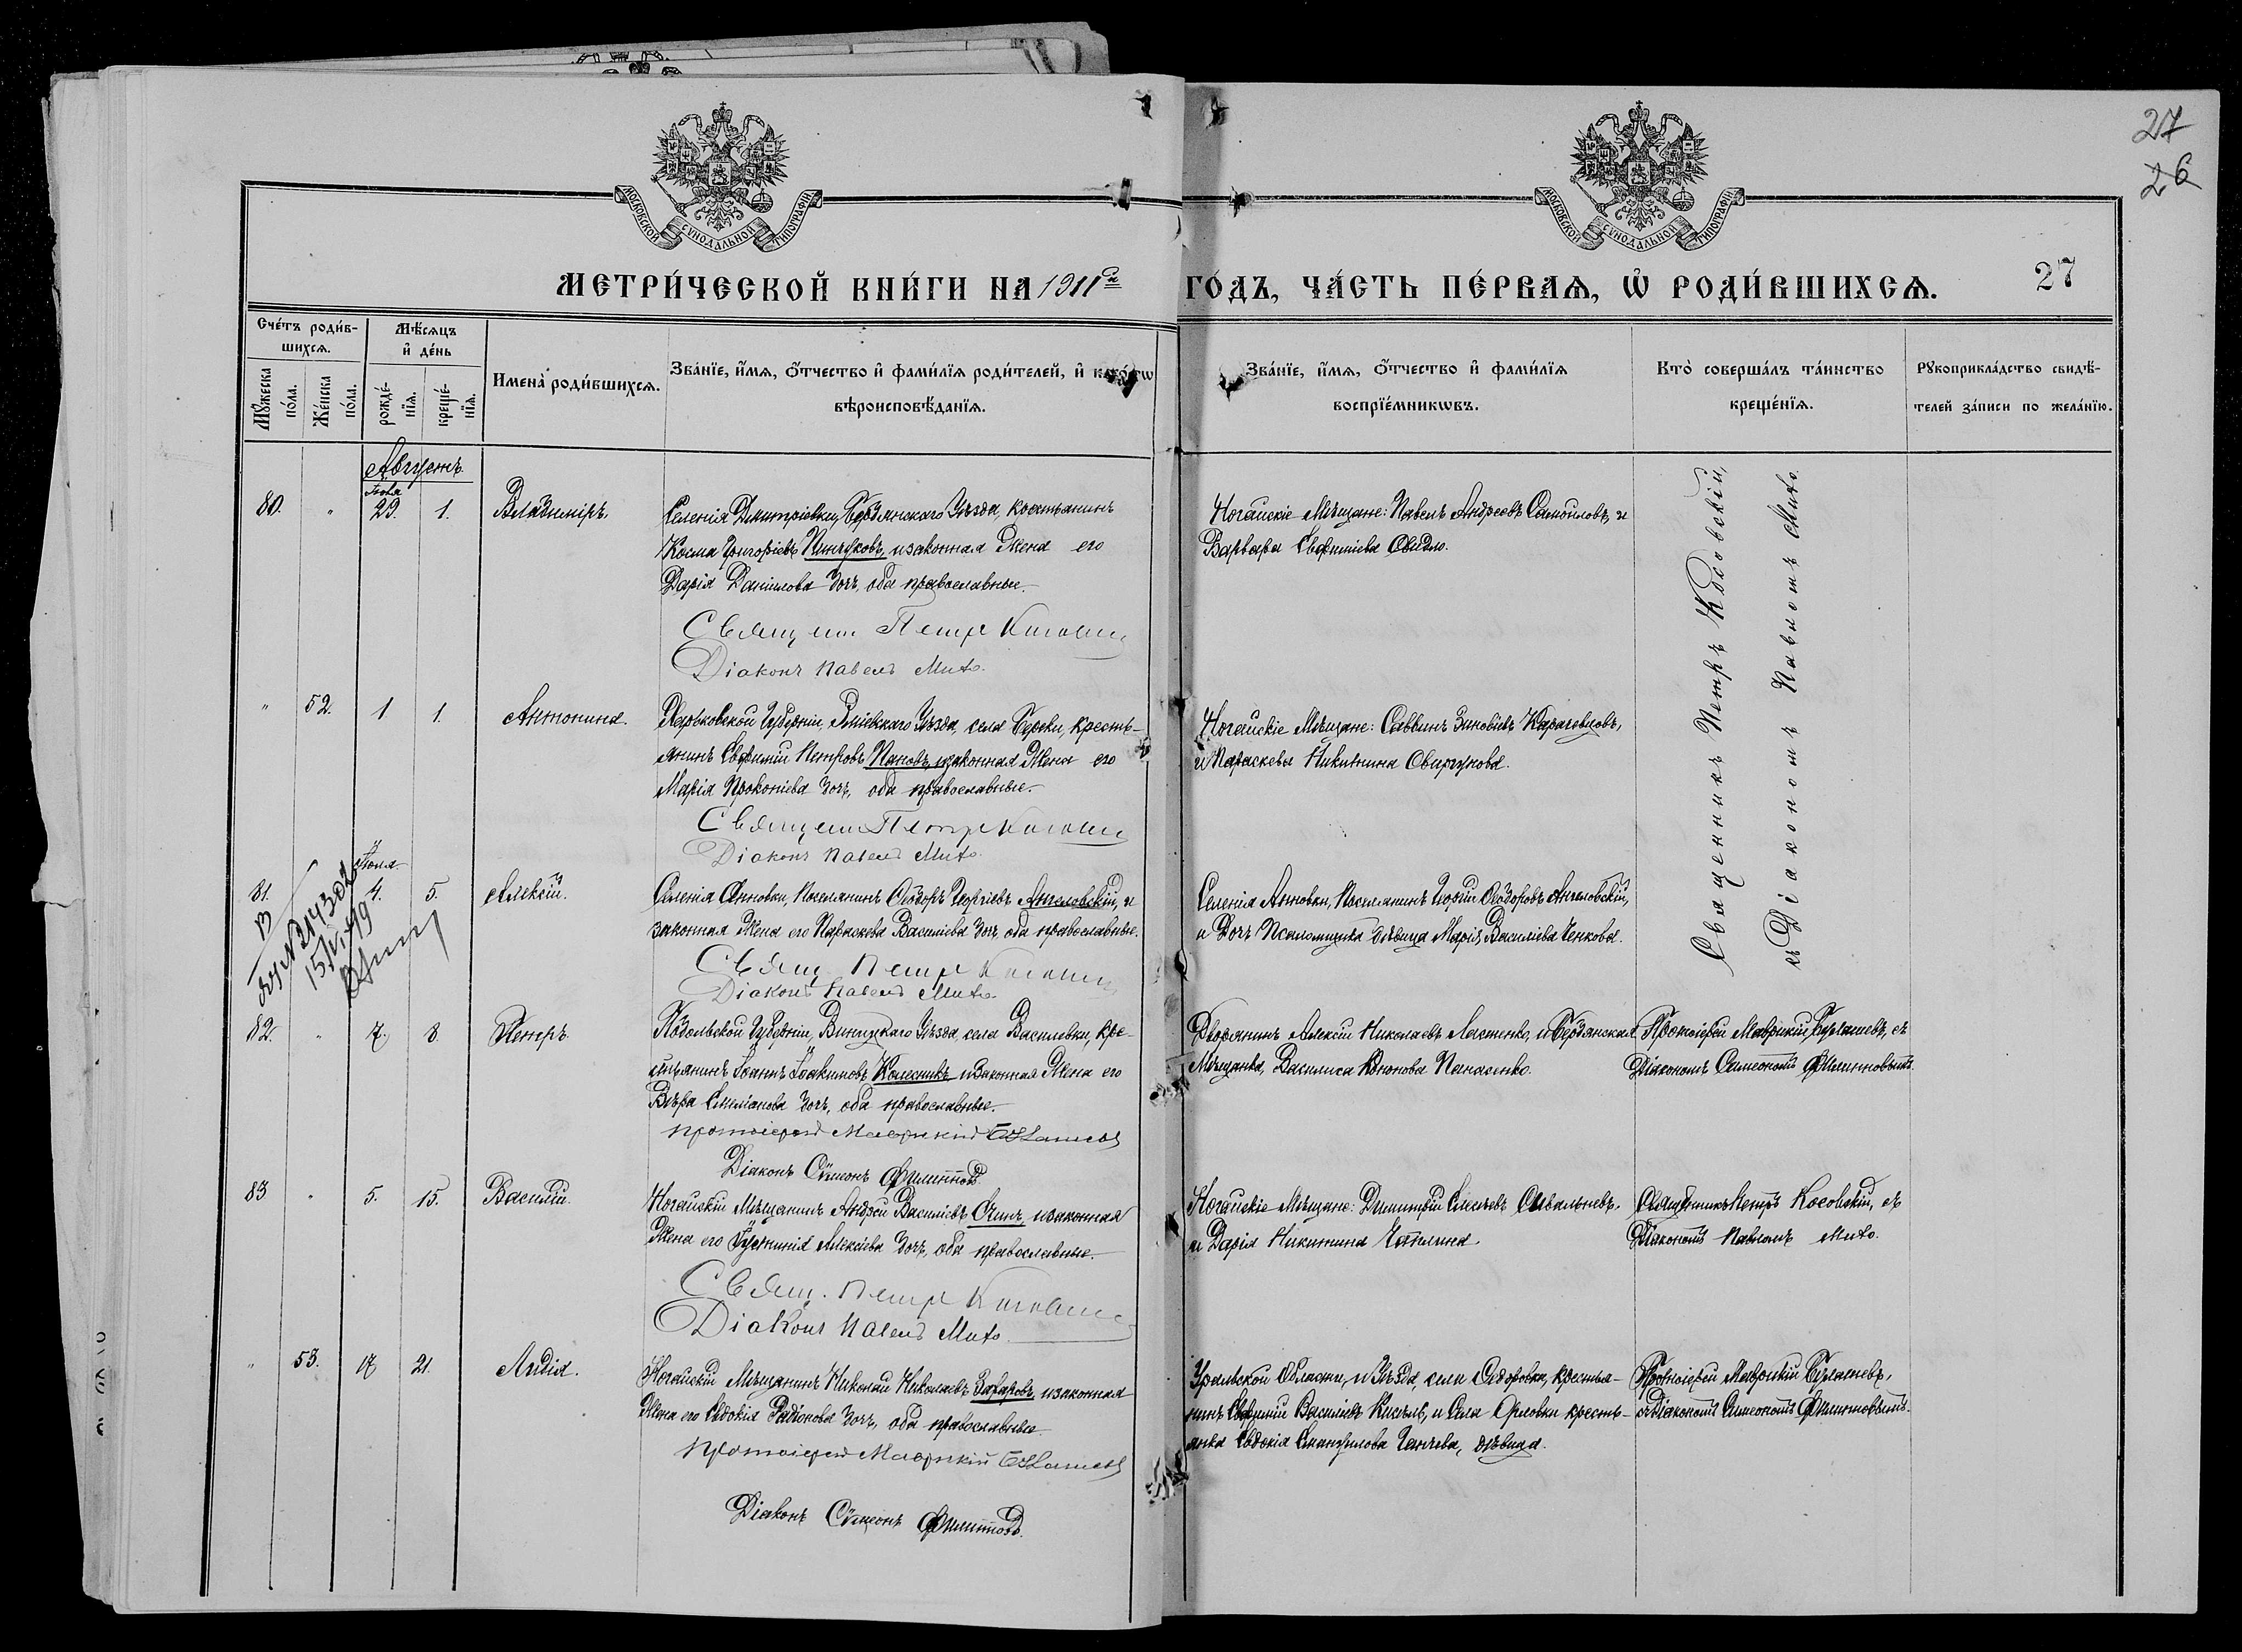 27
26
МОСКОВСКОЙ СѴНОДАЛЬНОЙ ТИПОГРАФІИ
МОСКОВСКОЙ СѴНОДАЛЬНОЙ ТИПОГРАФІИ
МЕТРИ́ЧЕСКОЙ КНИ́ГИ НА 1911й ГО́ДЪ, ЧА́СТЬ ПЕ́РВАѦ, Ѡ҆ РОДИ́ВШИХСѦ.
27
Сче́тъ роди́в-
шихсѧ.
Мꙋ́жеска по́ла.
Же́нска по́ла.
Мѣ́сяцъ
и҆ де́нь
рожде́-
нїѧ.
креще́-
нїѧ.
Имена̀ роди́вшихсѧ.
Зва́нїе, и҆́мѧ, ѻ҆́тчество и҆ фами́лїѧ роди́телей, и҆ како́гѡ
вѣроисповѣ́данїѧ.
Зва́нїе, и҆́мѧ, ѻ҆́тчество и҆ фами́лїѧ
воспрїе́мникѡвъ.
Кто̀ соверша́лъ та́инство
креще́нїѧ.
Рꙋкоприкла́дство свидѣ́-
телей за́писи по жела́нїю.
Августъ.
Іюля
80. " 29. 1. Владиміръ.
Селенія Дмитріевки, Бердянскаго Уѣзда, крестьянинъ
Косма Григоріевъ Пинчуковъ, и законная жена его
Дарія Данилова дочь, оба православные.
Священ. Петръ Косовскі
Діаконъ Павелъ Мито.
Ногайскіе Мѣщане: Павелъ Андреевъ Самойловъ, и
Варвара Евфиміева Свидло.
Священникъ Петръ Косовскій,
съ Діакономъ Павломъ Мито.
" 52. 1 1. Антонина.
Харьковской Губерніи, Зміевскаго Уѣзда, села Береки, кресть-
янинъ Евфимій Петровъ Пановъ, и законная жена его
Марія Прокопіева дочь, оба православные.
Священ Петръ Косовскі
Діаконъ Павелъ Мито.
Ногайскіе Мѣщане: Саввинъ Зиновіевъ Карагевловъ,
и Параскева Никитина Сваргунова.
Іюля
81. 4. 5. Алексій.
Селенія Анновки, Поселянинъ Ѳеодоръ Георгіевъ Ангеловскій, и
законная жена его Параскева Василіева дочь, оба православные.
Свящ Петръ Косовскі
Діаконъ Павелъ Мито.
Селенія Анновки, Поселянинъ Георгій Ѳеодоровъ Ангеловскій,
и Дочь Псаломщика дѣвица Марія Василіева Ченкова.
82. " 7. 8. Петръ.
Подольской Губерніи, Винницкаго Уѣзда, села Василевки, кре-
стьянинъ Іоаннъ Іоакимовъ Колесникъ и законная жена его
Вѣра Емеліанова дочь, оба православные.
Протоіерей Маврикій
Діаконъ Сѵмеонъ Филипповъ
Дворянинъ Алексій Николаевъ Ластенко, и Бердянская
Мѣщанка, Василиса Кононова Панасенко.
Протоіерей Маврикій, съ
Діакономъ Симеономъ Филипповымъ.
83 " 5. 15. Василій.
Ногайскій Мѣщанинъ Андрей Василіевъ Огинъ, и законная
Жена его Іустинія Алексіева дочь, оба православные.
Свящ. Петръ Косовскі
Діаконъ Павелъ Мито
Ногайскіе Мѣщане: Димитрій Сивальневъ,
и Дарія Никитина
Священникъ Петръ Косовскій, съ
Діакономъ Павломъ Мито.
" 53. 17 21. Лидія.
Ногайскій Мѣщанинъ Николай Николаевъ Захаровъ, и законная
Жена его Евдокія Родіонова дочь, оба православные.
Протоіерей Маврикій
Діаконъ Сѵмеонъ Филипповъ.
Уральской Области, и Уѣзда, села Ѳедоровки, крестья-
нинъ Евфимій Василіевъ Киселевъ, и Села Орловки кресть-
янка Евдокія Ганчева, дѣвица.
Протоіерей Маврикій
съ Діакономъ Симеономъ Филипповымъ.